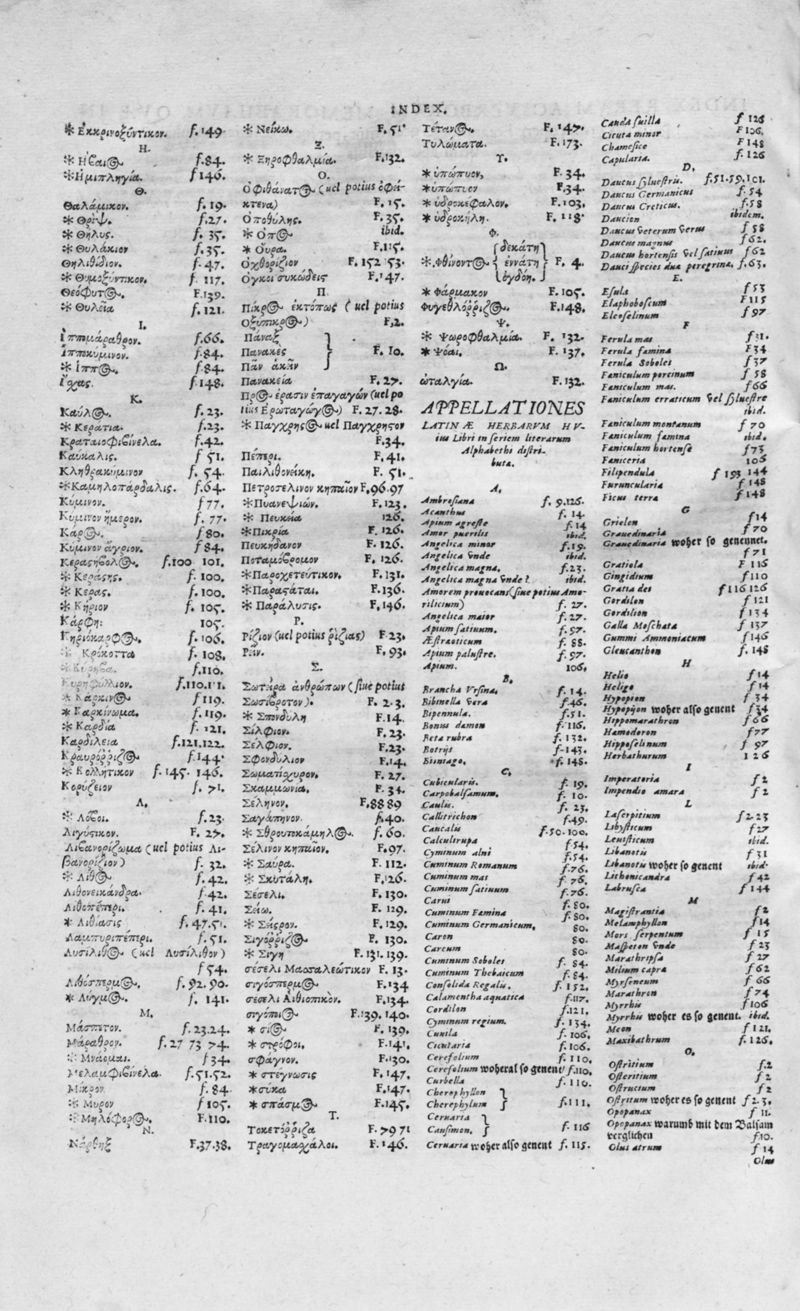 INDEX.
* Ἐκκρινοξύντικον. f.149.
H.
f.84.
* Ἡμιπληγία. f 146.
Θ.
Θαλάμικον. f. 19.
* Θρὶψ. f.27.
* Θῆλυς. f. 35.
* Θυλάκιον f.35.
Θηλιθίδιον. f. 47.
* Θυμοξύντικον. f. 117.
Θεόφυτος. F.139.
* Θυλεία f.121.
I.
Ἱππομάραθρον. f.66.
Ἱπποκύμινον. f.84.
* Ἵππος. f.84
Ἴχας. f 148.
K.
Καῦλος. f.23.
* Κεράτια. f.23.
f.42.
Καυκαλίς. f 51.
Κληθρακύμινον f. 54.
*Καμηλοπάρδαλις. f.64.
Κύμινον. f 77.
Κύμινον ἥμερον. f. 77.
Κάρος. f 80.
Κύμινον ἄγριον. f 84.
f.100 101.
* Κεράτης. f. 100.
* Κέρας. f. 100.
* Κήριον f. 105.
Κάρφη: 105.
f. 106.
* Κρόκοττα f. 108.
f.110.
f.110.111.
* Καρκίνος f 119.
* Καρκίνωμα. f. 119.
* Καρδία f. 121.
Καρδίλεια f.121.122.
f.144.
* Κολλητικόν f.145. 146.
f. 71.
Λ.
* Λοβοί. f.23.
Λιγυστικόν. F. 27.
Λιβανορίζωμα (uel potius Λι-
βανορίζιον) f. 32.
* Λίθος f.42.
Λιθονεικάνδρα. f.42.
Λιθοπέπερι. f. 41.
* Λιθίασις f. 47.51.
Λαμπυριπέπερι. f. 51.
Λυσιλίθος (uel Λυσίλιθον)
f 54.
Λιθόσπερμος f. 92. 90.
* Λυγμὸς. f. 141.
M.
Μάσπετον. f. 23.24.
Μάραθρον. f. 27 73 74.
* Μνάομαι. f 34.
f. 51.52.
Μίκρον. f. 84.
* Μῦρον f 105.
* Μηλοφόρος F.110.
N.
Νάρθηξ F.37.38.
* Νείκω. F. 51.
Ξ.
* Ξηροφθαλμία. F.132.
O.
Ὀφιθάνατος (uel potius ὀφιά-
κτενα) F. 15.
Ὀποθύλης. F. 35.
* Ὀπὸς ibid.
* Οὐρά. F.115.
Ὀχθορίζιον F. 152 53.
Ὄγκοι συκώδεις F.147.
Π.
Πίκρος ἐκτόπως (uel potius
Ὀξύπικρος) F.2.
Πάναξ
Πανακὲς } F. 10.
Πᾶν ἀκᾶν
Πανακεία F. 27.
Πρὸς ἔρασιν ἐπαγαγῶν (uel po
tius Ἐρωταγωγὸς) F. 27. 28.
* Παγχρὴς uel Παγχρηστον
F.34.
Πέπερι. F. 41.
Παιλιθονείκη. F. 51.
Πετροσέλινον κηπαῖον F.96.97
*Πυανεψιών. F. 123.
* Πευκεία 126.
*Πικρία F. 126.
Πευκήδανον F. 126.
Ποταμόδρομον F. 126.
*Παροχετεύτικον. F. 131.
*Παραστάται. F.136.
* Παράλυσις. F. 146.
P.
Ῥίζιον (uel potius ῥίζιας) F 23.
F. 93.
Σ.
Σωτῆρα ἀνθρώπων (siue potius
Σωσίβροτον). F. 2. 3.
* Σπονδύλη F.14.
Σίλφιον. F. 23.
Σέλφιον. F.23.
Σφονδύλιον F.14.
F. 27.
Σκαμμωνία. F. 34.
Σέληνον. F.88 89
Σαγάπηνον. f.40.
* Σθρουτοκάμηλος f. 60.
Σέλινον κηπαῖον. F.97.
* Σαῦρα. F. 112.
* Σκυτάλη. F.126.
Σέσελι. F. 130.
F. 129.
F. 129.
Σιγόῤῥιζος F. 130.
* Σιγὴ F.131.139.
σέσελι Μασσαλεώτικον F. 13.
σιγόσπερμος F.134
σέσελι Αἰθιοπικὸν. F.134.
F.139. 140.
F. 139.
* στρόφοι. F.141.
σφάγνον. F.130.
* στέγνωσις F. 147.
*σῦκα F.147.
* σπάσμος. F.145.
T.
Τοκετόῤῥιζα F. 79 71
Τραγομασχάλοι. F. 146.
Τέτανος. F. 147.
Τυλώματα. F. 173.
Υ.
* ὑπώπυον, F. 34.
* ὑπώπιον F.34.
* ὑδροκέφαλον. F. 103.
* ὑδροκήλη. F. 118.
Φ.
{δεκάτη
*Φθίνοντος {ἐννάτη} F. 4.
ὀγδόη.
* Φάρμακον F. 105.
Φυγεθλόῤῥιζος F.148.
Ψ.
* Ψωροφθαλμία. F. 132.
* Ψόαι. F. 137.
Ω.
ὠταλγία. F.132.
APPELLATIONES
LATINÆ HERBARVM HV-
ius Libri in seriem literarum
Alphabethi distri-
buta.
A.
Ambrosiana f. 9.126.
Acanthus f. 14.
Apium agreste f.14
Amor puerilis ibid.
Angelica minor f.19.
Angelica unde ibid.
Angelica magna. f.23.
Angelica magna vnde? ibid.
Amorem prouocans (siue potius Amo-
rilicium) f. 27.
Angelica maior f.27.
Apium satiuum. f. 97.
Æstraoticum f. 88.
Apium palustre. f.97.
Apium. 106.
B.
Brancha Vrsina. f. 14.
Bibinella vera f.46.
Bipennula. f.51.
Bonus damon f. 116.
Beta rubra f. 132.
Botrijs f.143.
Bismago. f. 148.
C.
Cubicularis. f. 19.
Carpobalsamum. f. 10.
Caulus. f. 23.
Callitrichon f.49.
Caucalis f.50.100.
Calcultrupa f 54.
Cyminum alni f.54.
Cuminum Romanum f.76.
Cuminum mas f 76.
Cuminum satiuum f.76.
Carui f. 80.
Cuminum Fæmina f. 80.
Cuminum Germanicum. 80.
Caron 80.
Careum 80.
Cuminum Soboles f. 84.
Cuminum Thebaicum f. 84.
Consolida Regalis. f. 152.
Calamentha aquatica f.117.
Cordilon f.121.
Cyminum regium. f. 134.
Cunila f. 106.
Cicutaria f.106.
Cerefolium f. 110.
Cerefolium woheral so genent f.110.
Curbella f. 110.
Cherephyllon
Cherephylum } f.111.
Ceruaria
Causimon. } f. 116
Ceruaria woher also genent f. 115.
Cauda suilla f 126
Cicuta minor F 106.
Chamesice F 148
Capularia. f. 126
D.
Daucus syluestris. f.51.59.101.
Daucus Germanicus f. 54
Daucus Creticus. f.58
Daucion ibidem.
Daucus veterum verus f 58
Daucus magnus f 62.
Daucus hortensis vel satiuus f 62
Dauci species dua peregrina. f.63.
E.
Esula f 53
Elaphoboscum F 115
Eleoselinum f 97
F
Ferula mas f 31.
Ferula fæmina F 34
Ferula Soboles f 37
Fæniculum porcinum f 58
Fæniculum mas. f 66
Fæniculum erraticum vel syluestre
ibid.
Fæniculum montanum f 70
Fæniculum fæmina ibid.
Fæniculum hortense f 73
Faniceria 106
Filipendula f 193 144
Furuncularia f 148
Ficus terræ f 148
G
Grielen f 14
Grauedinaria f 70
Grauedinaria woher so genennet.
f 71
Gratiola F 116
Gingidium f 110
Gratia dei f 116 126
Gordilon f 121
Gordilion f 134
Galla Moschata f 137
Gummi Ammoniacum f 146
Gleucanthon f. 148
H
Helio f 14
Heligo f 14
Hypopion f 34
Hypopijon woher also genent f 34
Hippomarathron f 66
Hamodoron f 77
Hipposelinum f 97
Herbathurum 126
I
Imperatoria f 2
Impendio amara f 2
L
Laserpitium f 2.23
Libysticum f 27
Leuisticum ibid.
Libanotis f 31
Libanotis woher so genent ibid.
Lithonicandra f 42
Labrusca f 144
M
Magistrantia f 2
Melamphyllon f 14
Mors serpentum f 15
Maspeton vnde f 23
Marathripsa f 27
Milium capræ f 62
Myrsoneum f 66
Marathron f 74
Myrrhis f 106
Myrrhis woher es so genent. ibid.
Meon f 121.
Maxibathrum f. 126.
O.
Ostritium f.2
Osteritium f 2
Ostrucium f 2
Ostritum woher es so genent f 2. 3.
Opopanax f 11.
Opopanax warumb mit dem Balsam
verglichen f.10.
Olus atrum f 14
Olus